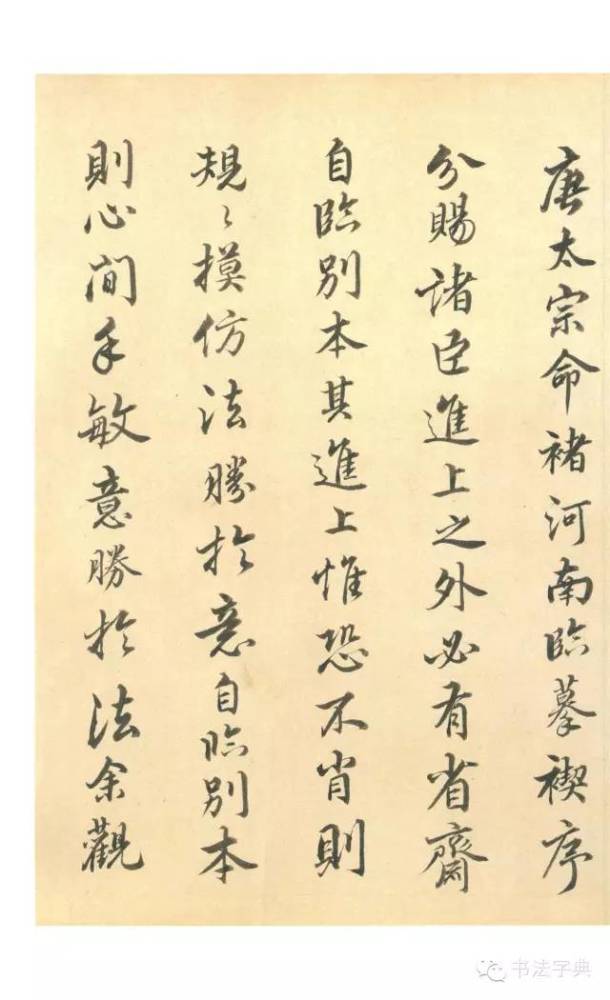 唐太宗命褚河南臨摹禊序
分賜諸臣進上之外必有省齋
自臨別本其進上惟恐不肖則
規〻摸仿法勝於意自臨別本
則心閒手敏意勝於法余觀
书法字典